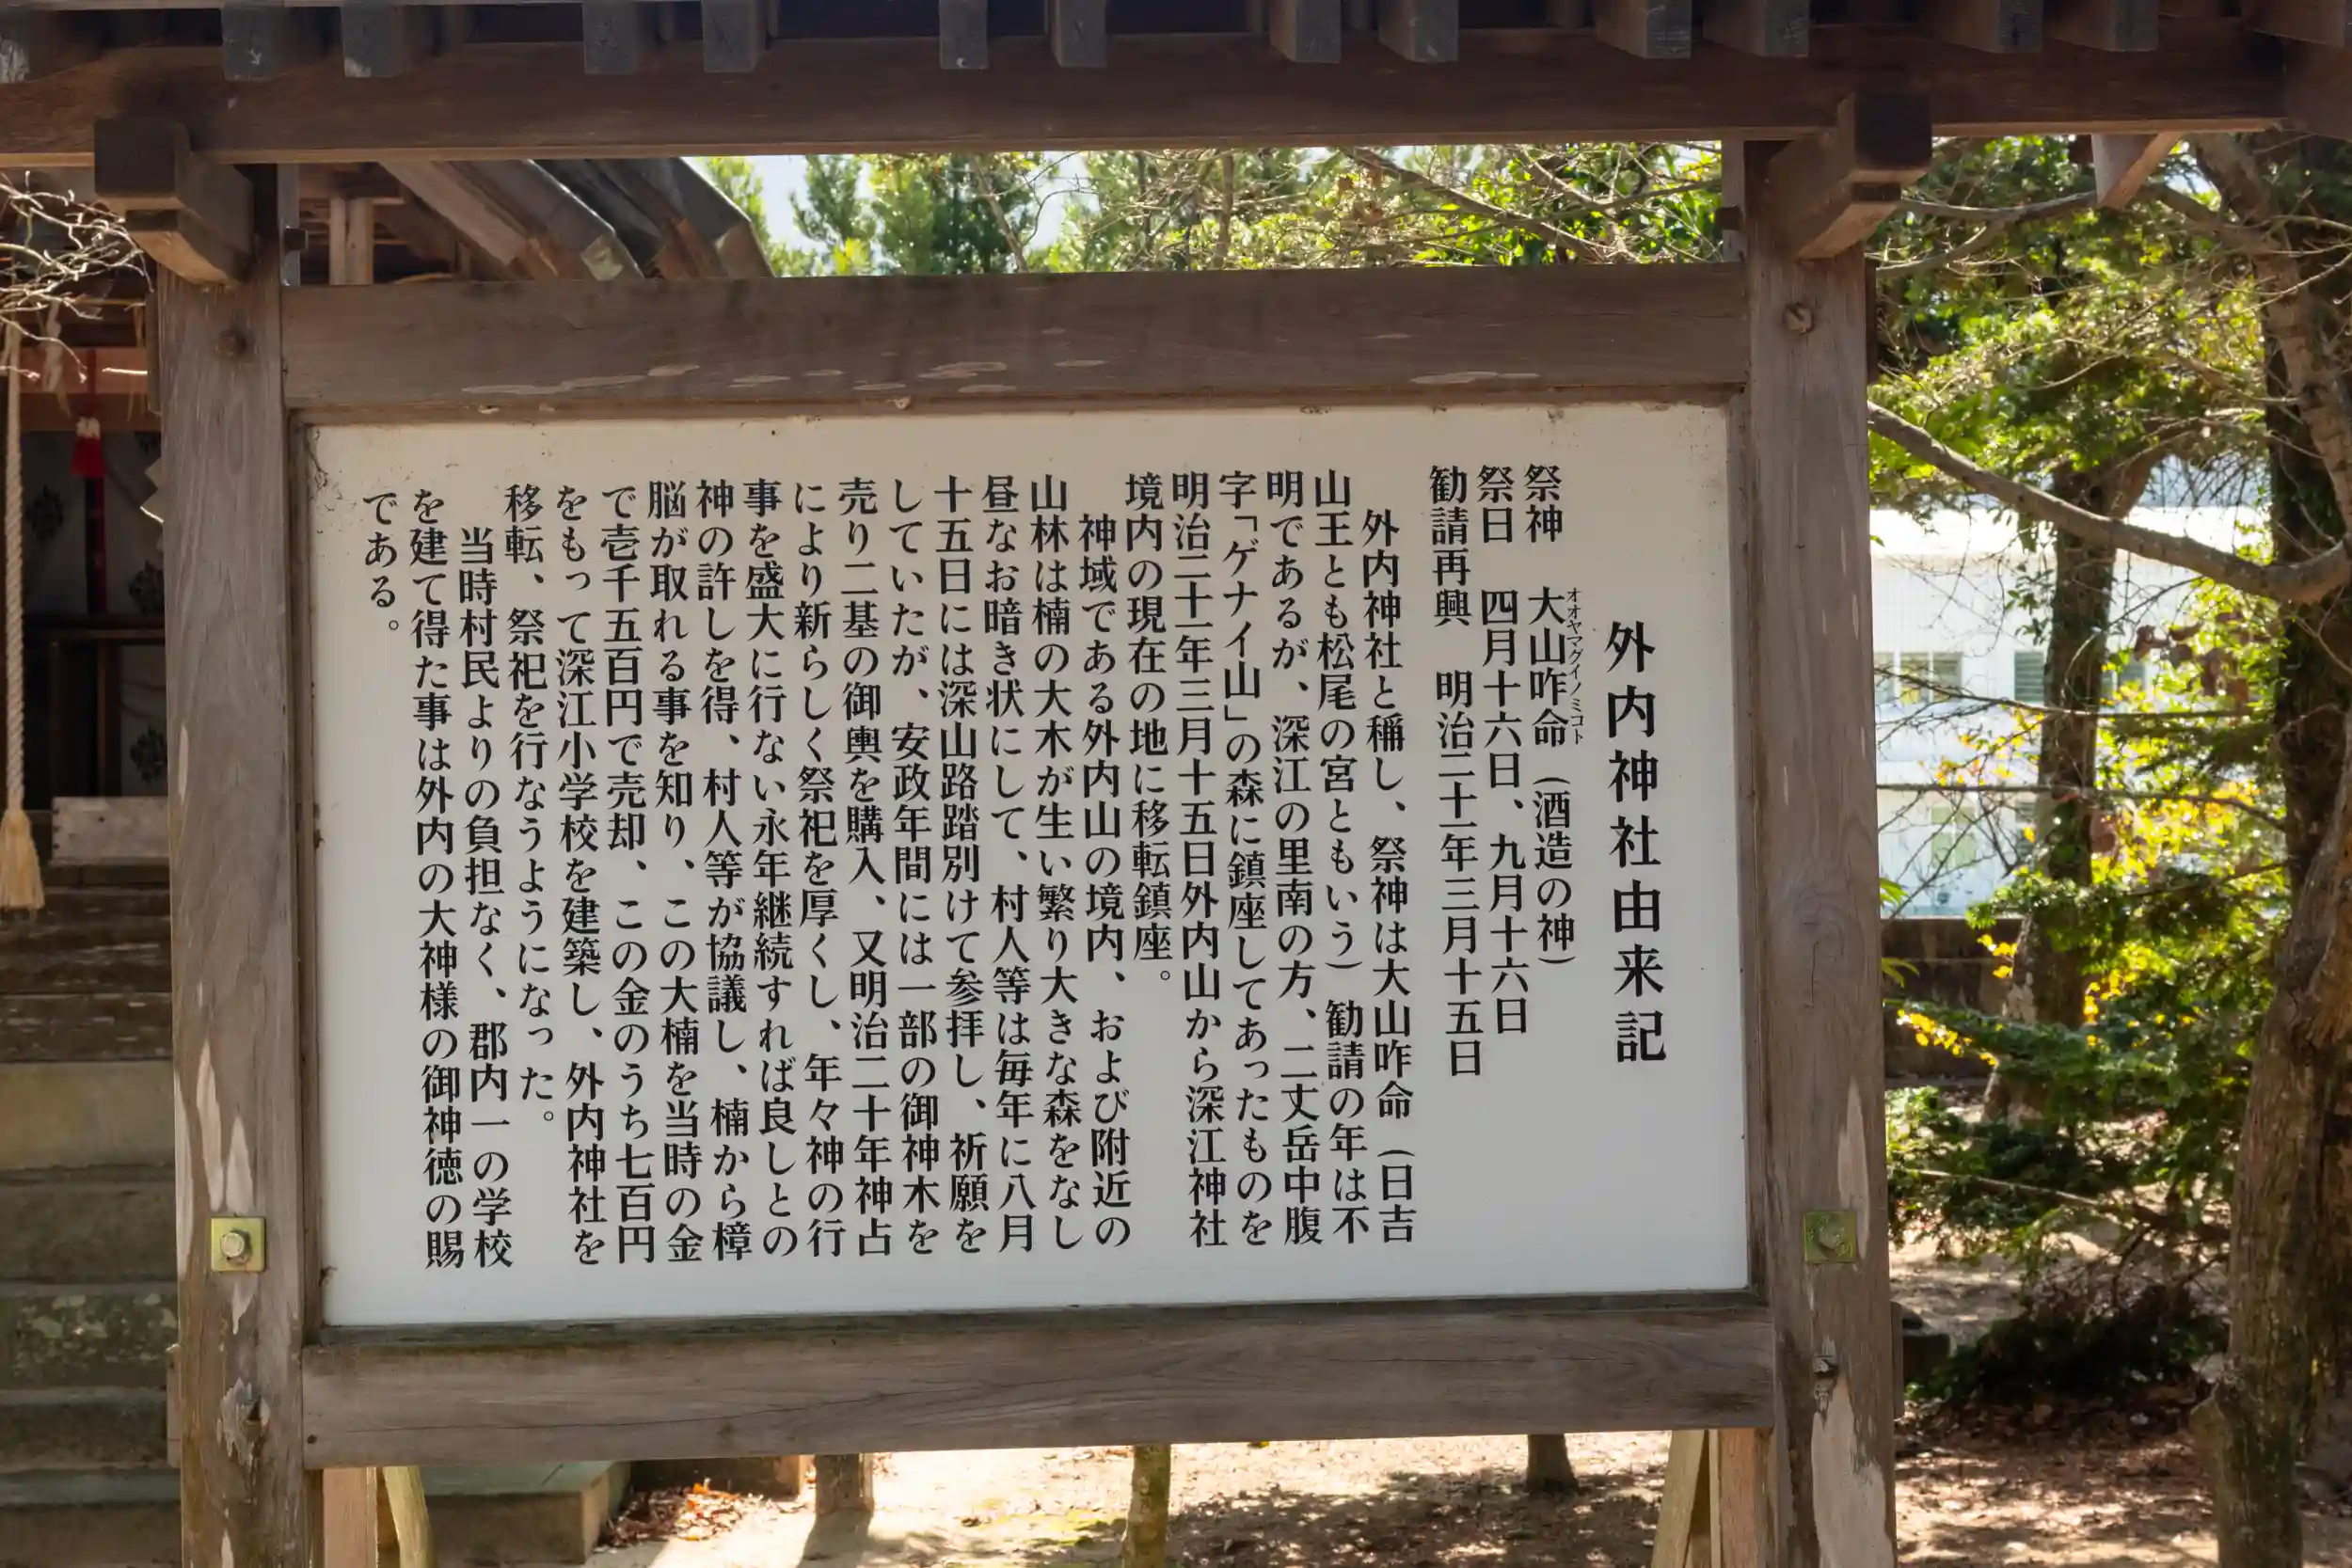 外内神社由来記
祭神　大山咋命（酒造の神）
オオヤマグイノミコト
祭日　四月十六日、九月十六日
勧請再興　明治二十一年三月十五日
外内神社と稱し、祭神は大山咋命（日吉
山王とも松尾の宮ともいう）勧請の年は不
明であるが、深江の里南の方、二丈岳中腹
字「ゲナイ山」の森に鎮座してあったものを
明治二十一年三月十五日外内山から深江神社
境内の現在の地に移転鎮座。
神域である外内山の境内、および附近の
山林は楠の大木が生い繁り大きな森をなし
昼なお暗き状にして、村人等は毎年に八月
十五日には深山路踏別けて参拝し、祈願を
していたが、安政年間には一部の御神木を
売り二基の御輿を購入、又明治二十年神占
により新らしく祭祀を厚くし、年々神の行
事を盛大に行ない永年継続すれば良しとの
神の許しを得、村人等が協議し、楠から樟
脳が取れる事を知り、この大楠を当時の金
で壱千五百円で売却、この金のうち七百円
をもって深江小学校を建築し、外内神社を
移転、祭祀を行なうようになった。
当時村民よりの負担なく、郡内一の学校
を建て得た事は外内の大神様の御神徳の賜
である。